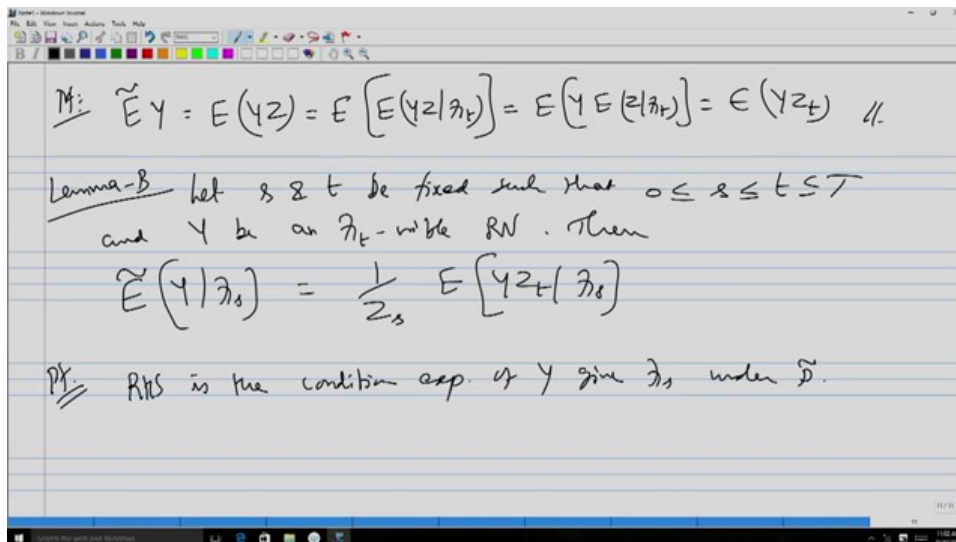 Note1 - Windows Journal
File Edit View Insert Actions Tools Help
B I
Pf: Ẽ Y = E(YZ) = E[E(YZ|ℱt)] = E[Y E(Z|ℱt)] = E(YZt) //.
Lemma-B Let s & t be fixed such that 0 ≤ s ≤ t ≤ T
and Y be an ℱt-mible RV. Then
Ẽ(Y|ℱs) = 1/Zs E[YZt|ℱs]
Pf. RHS is the condition exp. of Y give ℱs under P̃.
11/11
Search the web and Windows
11:02 AM